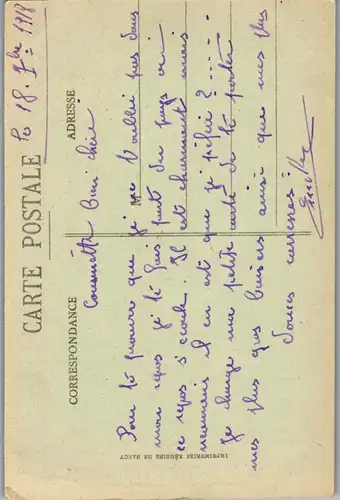 Le 18. 7bre 1918
CARTE POSTALE
CORRESPONDANCE
ADRESSE
M
bien chérie
Pour te prouver que je ne t'oublie pas dans
mon repos je te fais part du pays où
ce repos s'écoule. Il est charmant mais
néanmoins il en est que je
Je charge ma petite carte de te porter
mes plus gros baisers ainsi que mes plus
douces caresses.
IMPRIMERIES RÉUNIES DE NANCY